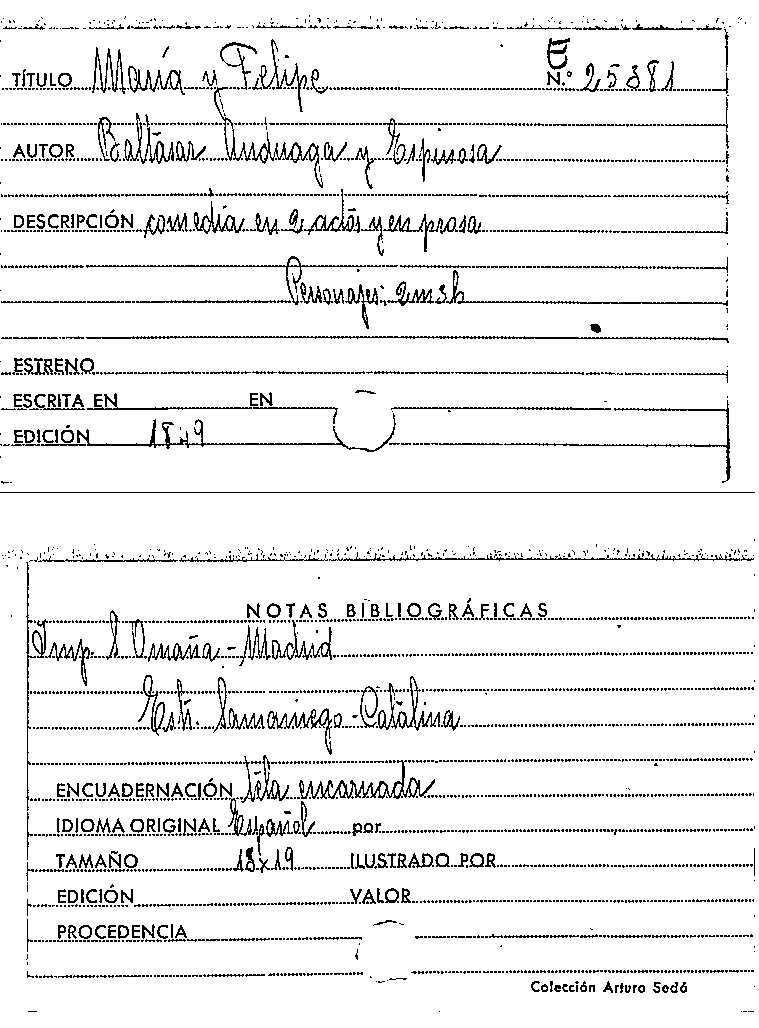 E
TÍTULO María y Felipe N.º 25381
AUTOR Baltasar Anduaga y Espinosa
DESCRIPCIÓN comedia en 2 actos y en prosa
Personajes: 2m3h
ESTRENO
ESCRITA EN EN
EDICIÓN 1849
NOTAS BIBLIOGRÁFICAS
Imp. S Omaña - Madrid
Estr. Samaniego - Catalina
ENCUADERNACIÓN tela encarnada
IDIOMA ORIGINAL Español por
TAMAÑO 13x19 ILUSTRADO POR
EDICIÓN VALOR
PROCEDENCIA
Colección Arturo Sedó